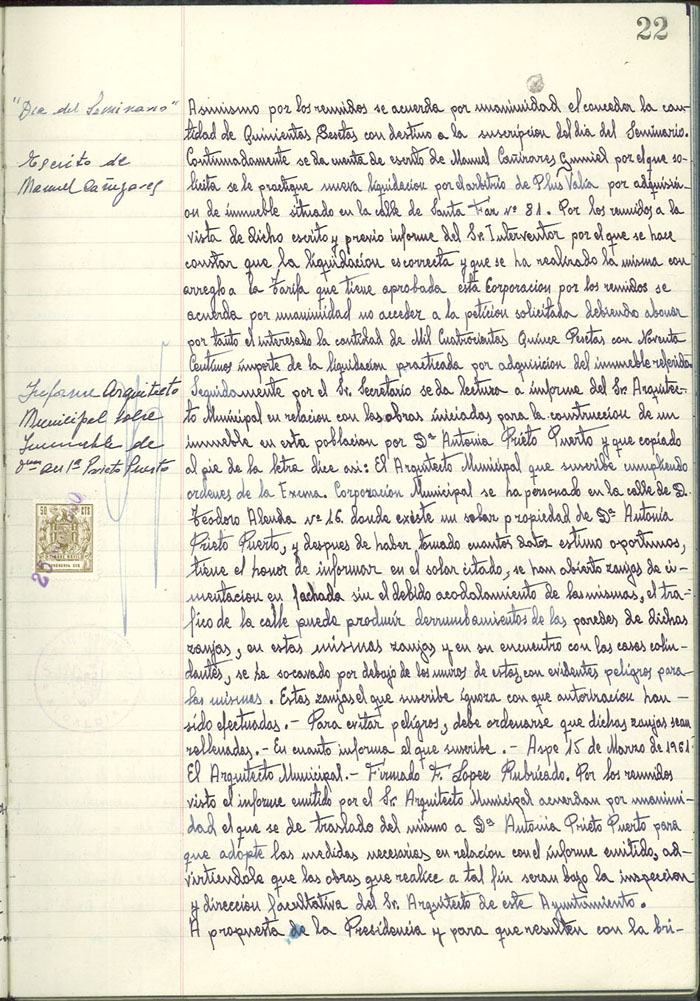 22
"Dia del Seminario"
Asimismo por los reunidos se acuerda por unanimidad el conceder la can-
tidad de Quinientas Pesetas con destino a la suscripcion del dia del Seminario.
Escrito de
Manuel Cañizares
Continuadamente se da cuenta de escrito de Manuel Cañizares Gumiel por el que so-
licita se le practique nueva liquidacion por el arbitrio de Plus Valia por adquisici-
on de inmueble situado en la calle de Santa Faz nº 81. Por los reunidos a la
vista de dicho escrito y previo informe del Sr. Interventor por el que se hace
constar que la liquidacion es correcta y que se ha realizado la misma con
arreglo a la Tarifa que tiene aprobada esta Corporacion por los reunidos se
acuerda por unanimidad no acceder a la peticion solicitada debiendo abonar
por tanto el interesado la cantidad de Mil Cuatrocientas Quince Pesetas con Noventa
Centimos importe de la liquidacion practicada por adquisicion del inmueble referido
Informe Arquitecto
Municipal sobre
Inmueble de
Prieto Puerto
Seguidamente por el Sr. Secretario se da lectura a informe del Sr. Arquitec-
to Municipal en relacion con las obras iniciadas para la construccion de un
inmueble en esta poblacion por Dª Antonia Prieto Puerto y que copiado
al pie de la letra dice asi: El Arquitecto Municipal que suscribe cumpliendo
ordenes de la Excma. Corporacion Municipal se ha personado en la calle de D.
Teodoro Alenda nº 16. donde existe un solar propiedad de Dª Antonia
Prieto Puerto, y despues de haber tomado cuantos datos estimo oportunos,
tiene el honor de informar en el solar citado, se han abierto zanjas de ci-
mentacion en fachada sin el debido acodalamiento de las mismas, el tra-
fico de la calle puede producir derrumbamientos de las paredes de dichas
zanjas, en estas mismas zanjas y en su encuentro con las casas colin-
dantes, se ha socavado por debajo de los muros de estas, con evidentes peligros para
las mismas. Estas zanjas el que suscribe ignora con que autorizacion han
sido efectuadas.- Para evitar peligros, debe ordenarse que dichas zanjas sean
rellenadas.- En cuanto informa el que suscribe.- Aspe 15 de Marzo de 1961.
El Arquitecto Municipal.- Firmado F. Lopez Rubricado. Por los reunidos
visto el informe emitido por el Sr. Arquitecto Municipal acuerdan por unanimi-
dad el que se de traslado del mismo a Dª Antonia Prieto Puerto para
que adopte las medidas necesarias en relacion con el informe emitido, ad-
virtiendole que las obras que realice a tal fin seran bajo la inspeccion
y direccion facultativa del Sr. Arquitecto de este Ayuntamiento.
A propuesta de la Presidencia y para que resulten con la bri-
50 CTS